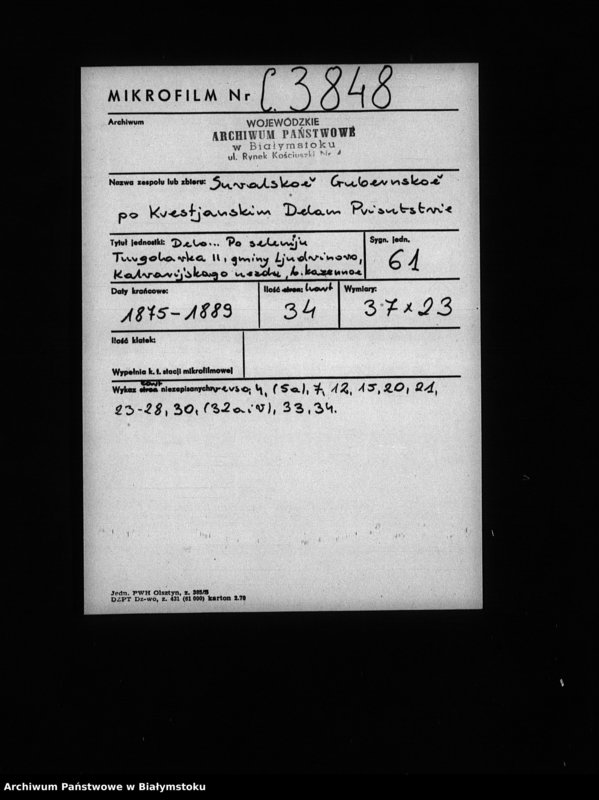 MIKROFILM Nr C.3848
Archiwum
WOJEWÓDZKIE
ARCHIWUM PAŃSTWOWE
w Białymstoku
ul. Rynek Kościuszki Nr 4
Nazwa zespołu lub zbioru: Suvalskoě Gubernskoě
po Krestjanskim Delam Prisutstvie
Tytuł jednostki: Delo... Po seleniju
Turgolavka II, gminy Ljudvinovo,
Kalvarijskago uezda, b. kazennoe
Sygn. jedn.
61
Daty krańcowe:
1875-1889
Ilość stron: kart
34
Wymiary:
37x23
Ilość klatek:
Wypełnia k. t. stacji mikrofilmowej
Wykaz stron kart niezapisanych: verso, 4, (5a), 7, 12, 15, 20, 21,
23-28, 30, (32a i v), 33, 34.
Jedn. PWH Olsztyn, z. 385/B
DZPT Dz-wo, z. 431 (61 000) karton 2.70
Archiwum Państwowe w Białymstoku